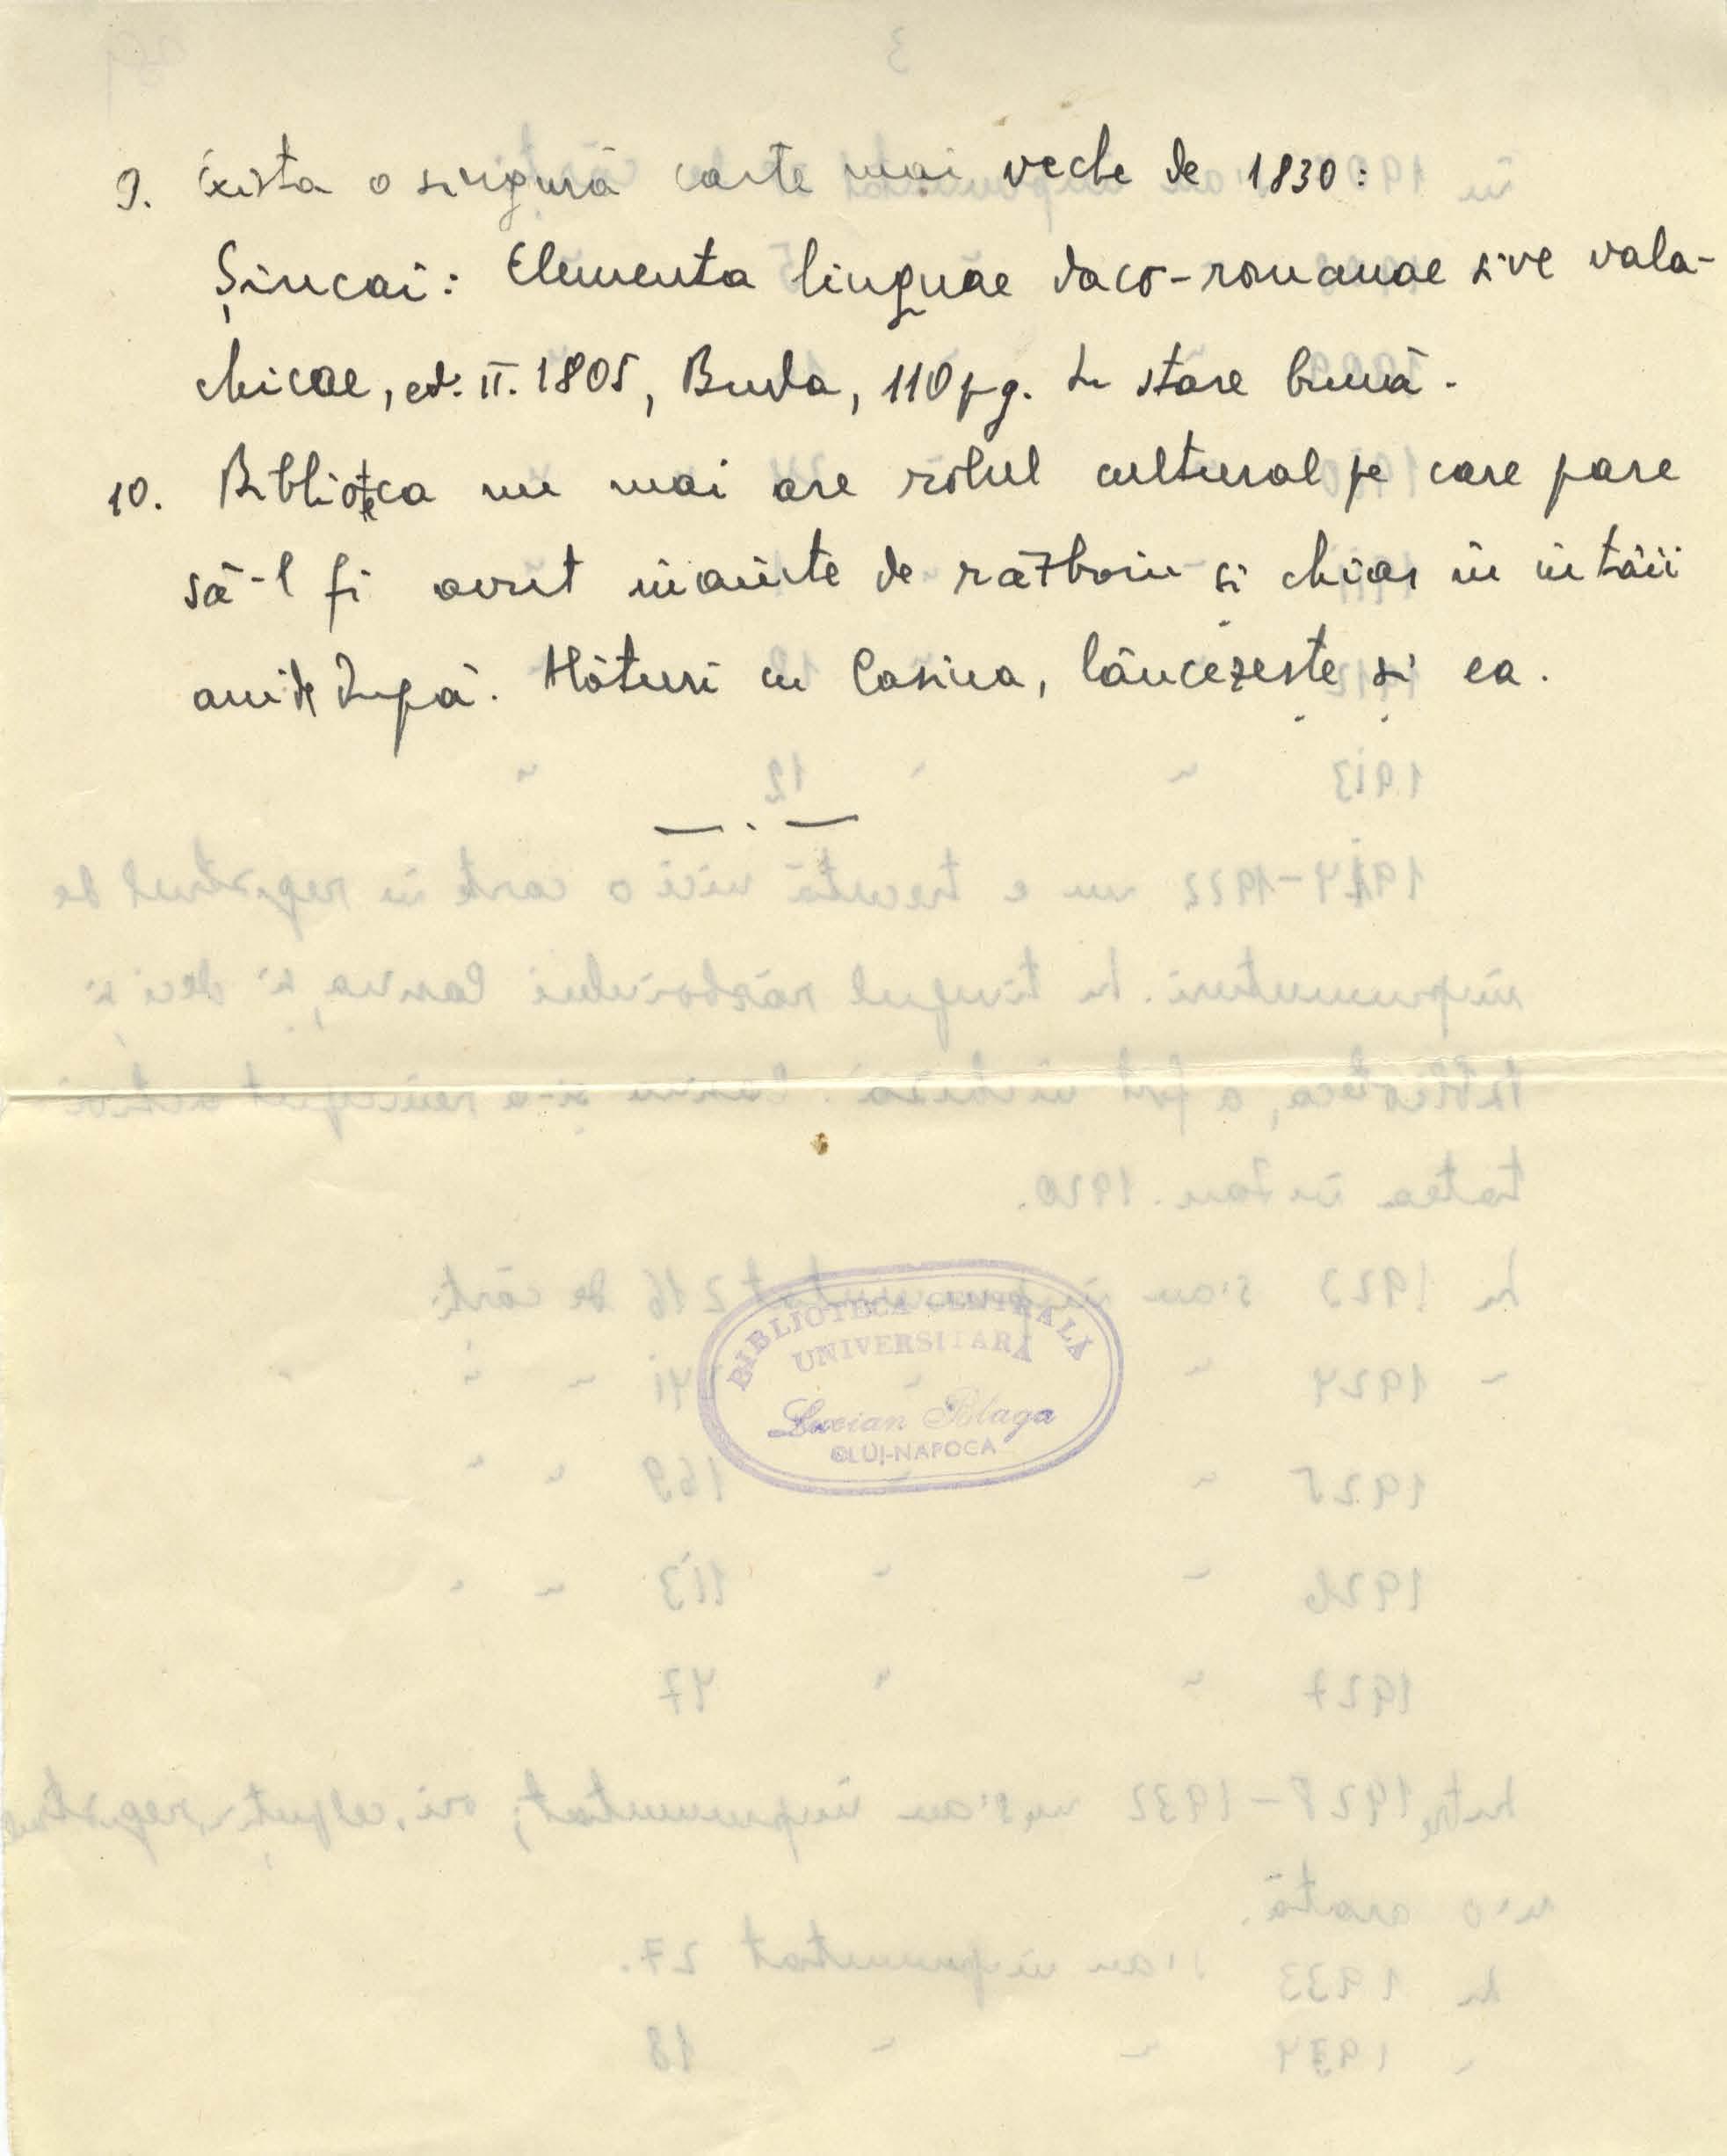 9. Există o singură carte mai veche de 1830:
Șincai: Elementa linguae daco-romanae sive vala-
chicae, ed. II. 1805, Buda, 110 pg. În stare bună.
10. Biblioteca nu mai are rolul cultural pe care pare
să-l fi avut înainte de războiu și chiar în întâii
ani de după. Alături cu Casina, lâncezește și ea.
BIBLIOTECA CENTRALĂ
UNIVERSITARĂ
Lucian Blaga
CLUJ-NAPOCA